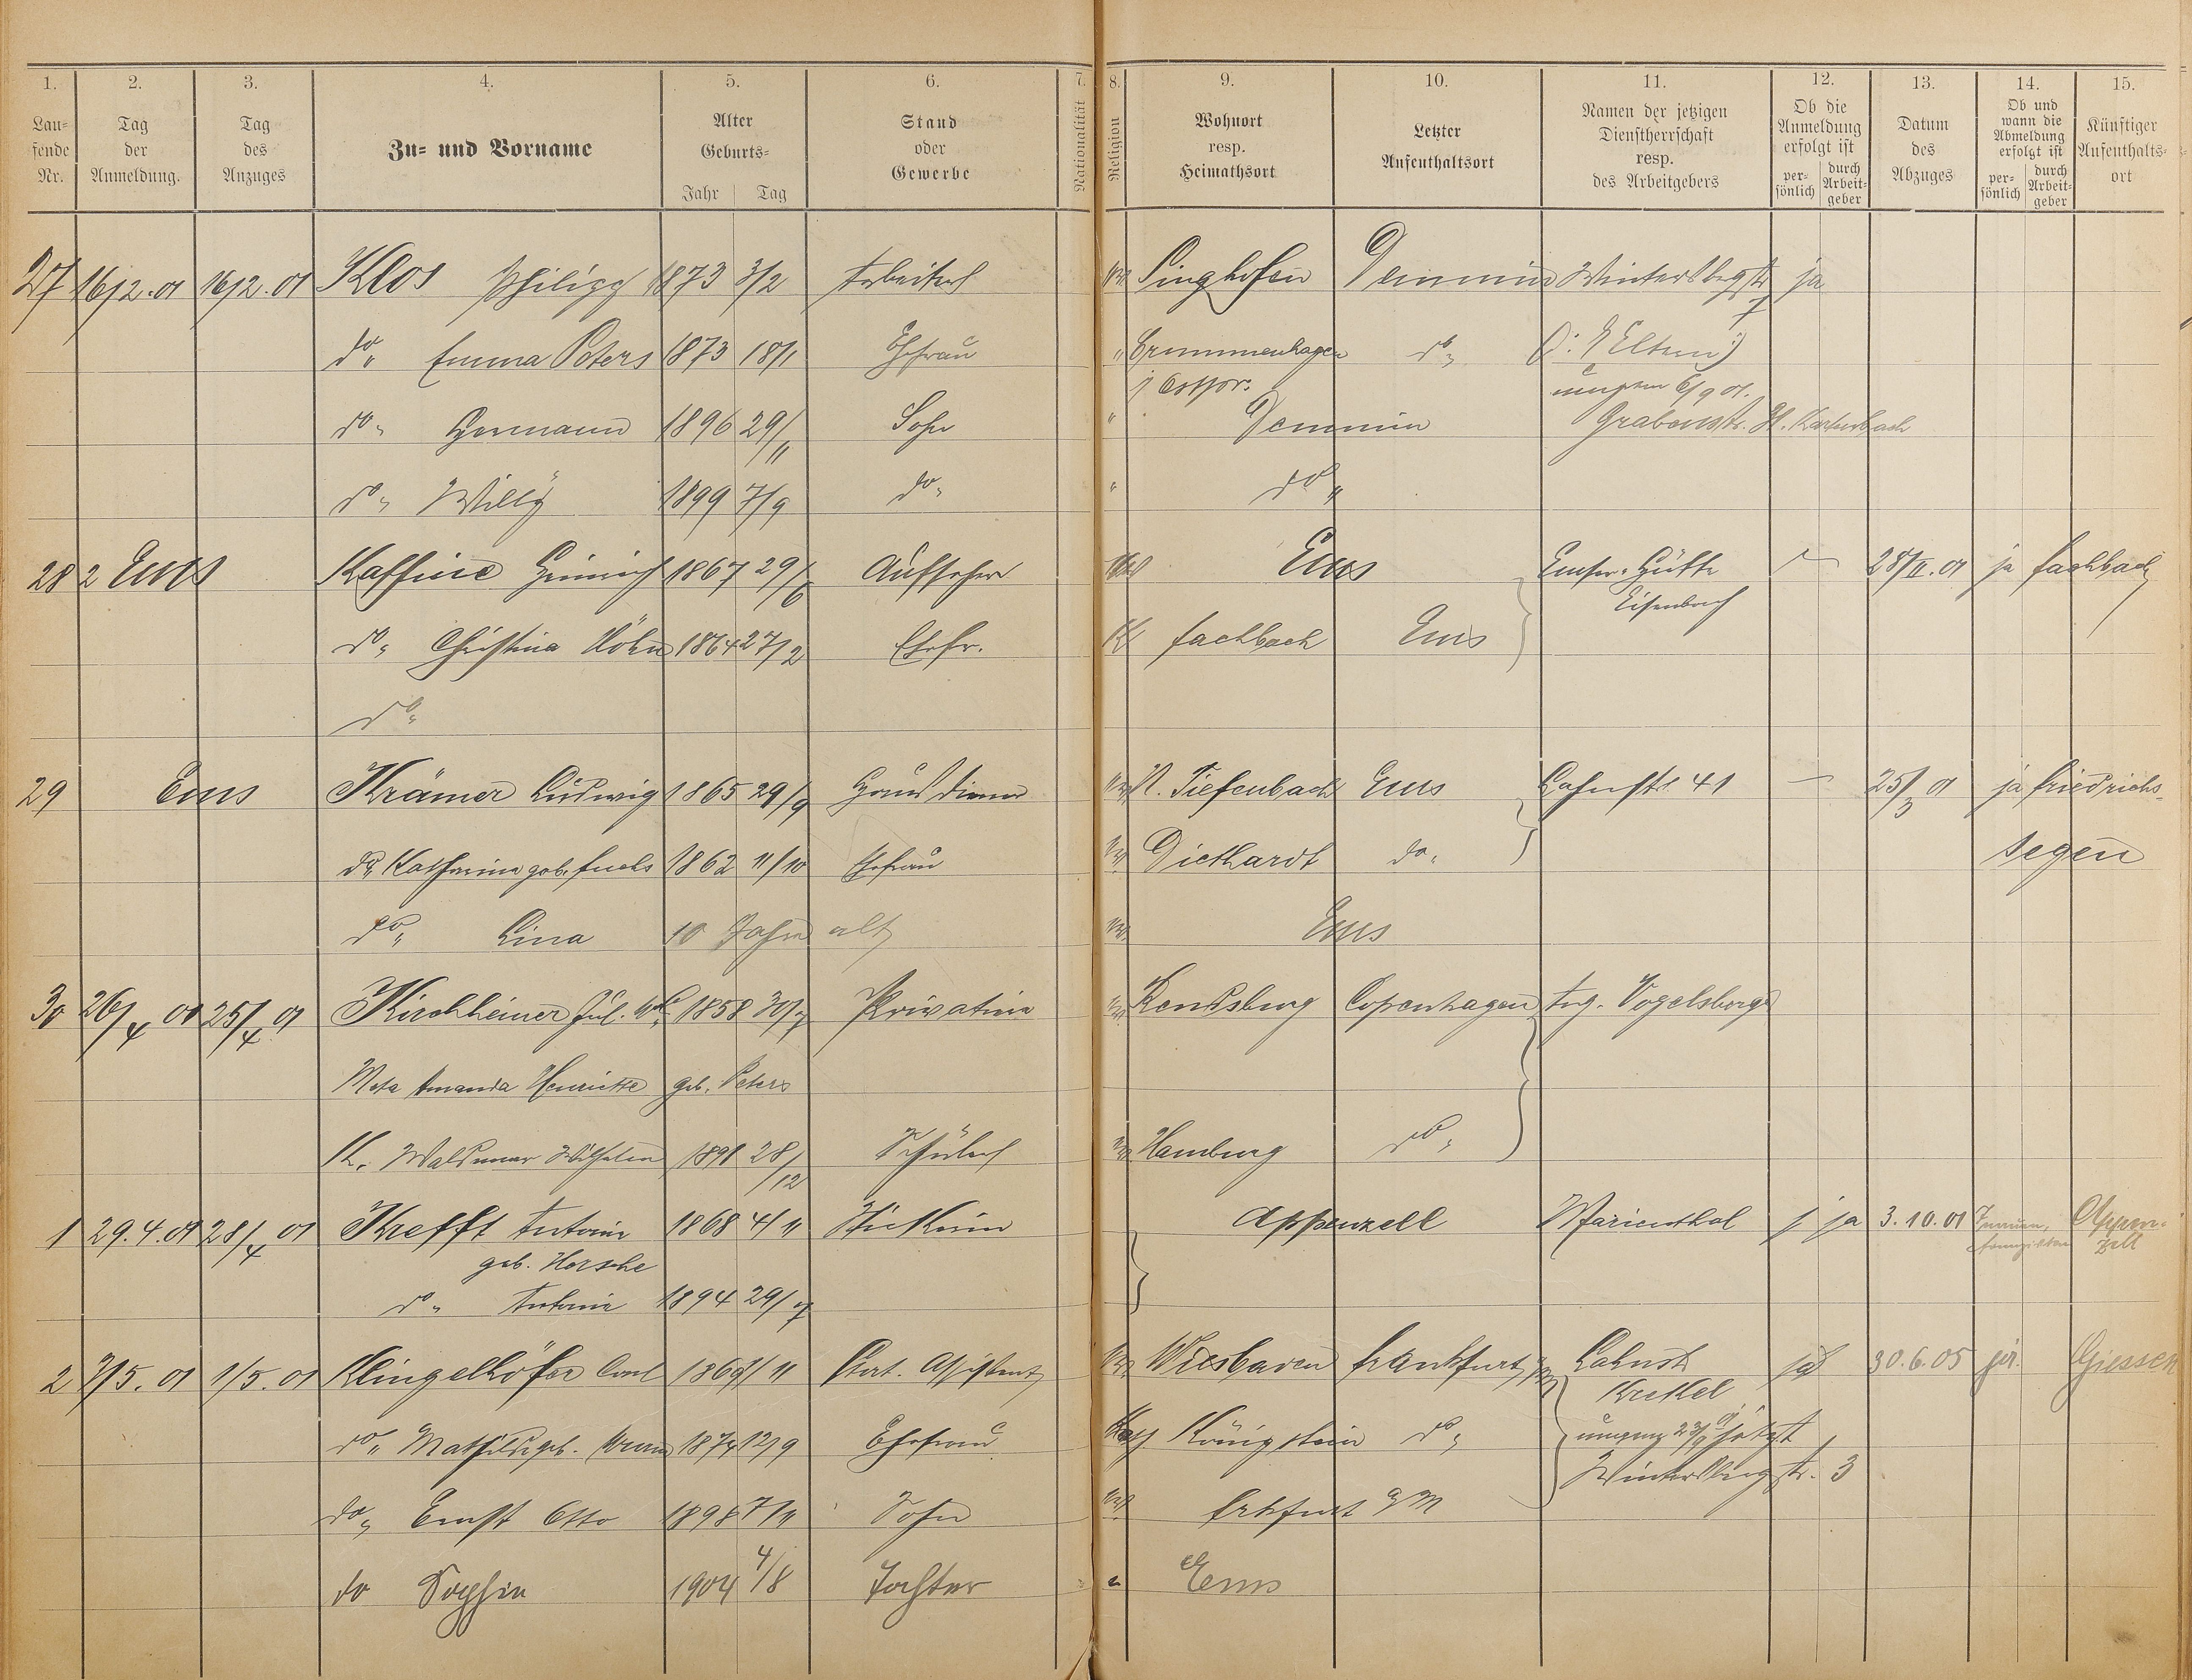 1. 2. 3. 4. 5. 6. 7. 8. 9. 10. 11. 12. 13. 14. 15.
Laufende Nr. Tag der Anmeldung. Tag des Anzuges Zu- und Vorname Alter Geburts- Jahr Tag Stand oder Gewerbe Nationalität Religion Wohnort resp. Heimathsort Letzter Aufenthaltsort Namen der jetzigen Dienstherrschaft resp. des Arbeitgebers Ob die Anmeldung erfolgt ist persönlich durch Arbeitgeber Datum des Abzuges Ob und wann die Abmeldung erfolgt ist persönlich durch Arbeitgeber Künftiger Aufenthaltsort
27 16/2.01 16/2.01 Klos Philipp 1873 3/2 Arbeiter Singhofen Demmin Wintersbergstr ja
do. Emma Peters 1873 18/1 Ehefrau " Grummenhagen do. (: b/ Eltern :)
umgem 6/9 01.
do. Hermann 1896 29/11 Sohn " Demmin Grabenstr. H.
do. Willy 1899 7/9 do. " do.
28 2 Ems Kaffine Heinrich 1867 29/6 Aufseher Ems Emser-Hütte 28/II.01 ja Fachbach
Eisenbach
do. Christina Höhn 1864 27/2 Ehefr. K Fachbach Ems
do.
29 Ems Krämer Ludwig 1865 29/9 Hausdiener N. Tiefenbach Ems Lahnstr. 41 25/3 01 ja Friedrichs-
do. Katharina geb. Fuchs 1862 11/10 Ehefrau Diethardt do. segen
do. Lina 10 Jahre alt Ems
30 26/4 01 25/4 01 Kirchheiner Jul. 1858 30/7 Privatiere Rendsburg Copenhagen Aug. Vogelsberger
Meta Amanda Henriette geb. Peters
K. Waldemar Wilhelm 1891 28/12 Schüler Hamburg do.
1 29.4.01 28/4 01 Krefft Antonie 1868 4/11 Appenzell Marienthal ja 3.10.01 Appen-
zell
geb. Hersche
do. Antonie 1894 29/7
2 2/5.01 1/5.01 Klingelhöfer Carl 1869 /11 Assistent Wiesbaden Frankfurt Lahnstr ja 30.6.05 per. Giessen
Krekel
do. Mathilde geb. 1874 12/9 Ehefrau Königstein do. umgem 23/9 01 jetzt
Wintersbergstr. 3
do. Ernst Otto 1898 7/11 Sohn Frkfurt a/M
do Sophie 1904 4/8 Tochter " Ems